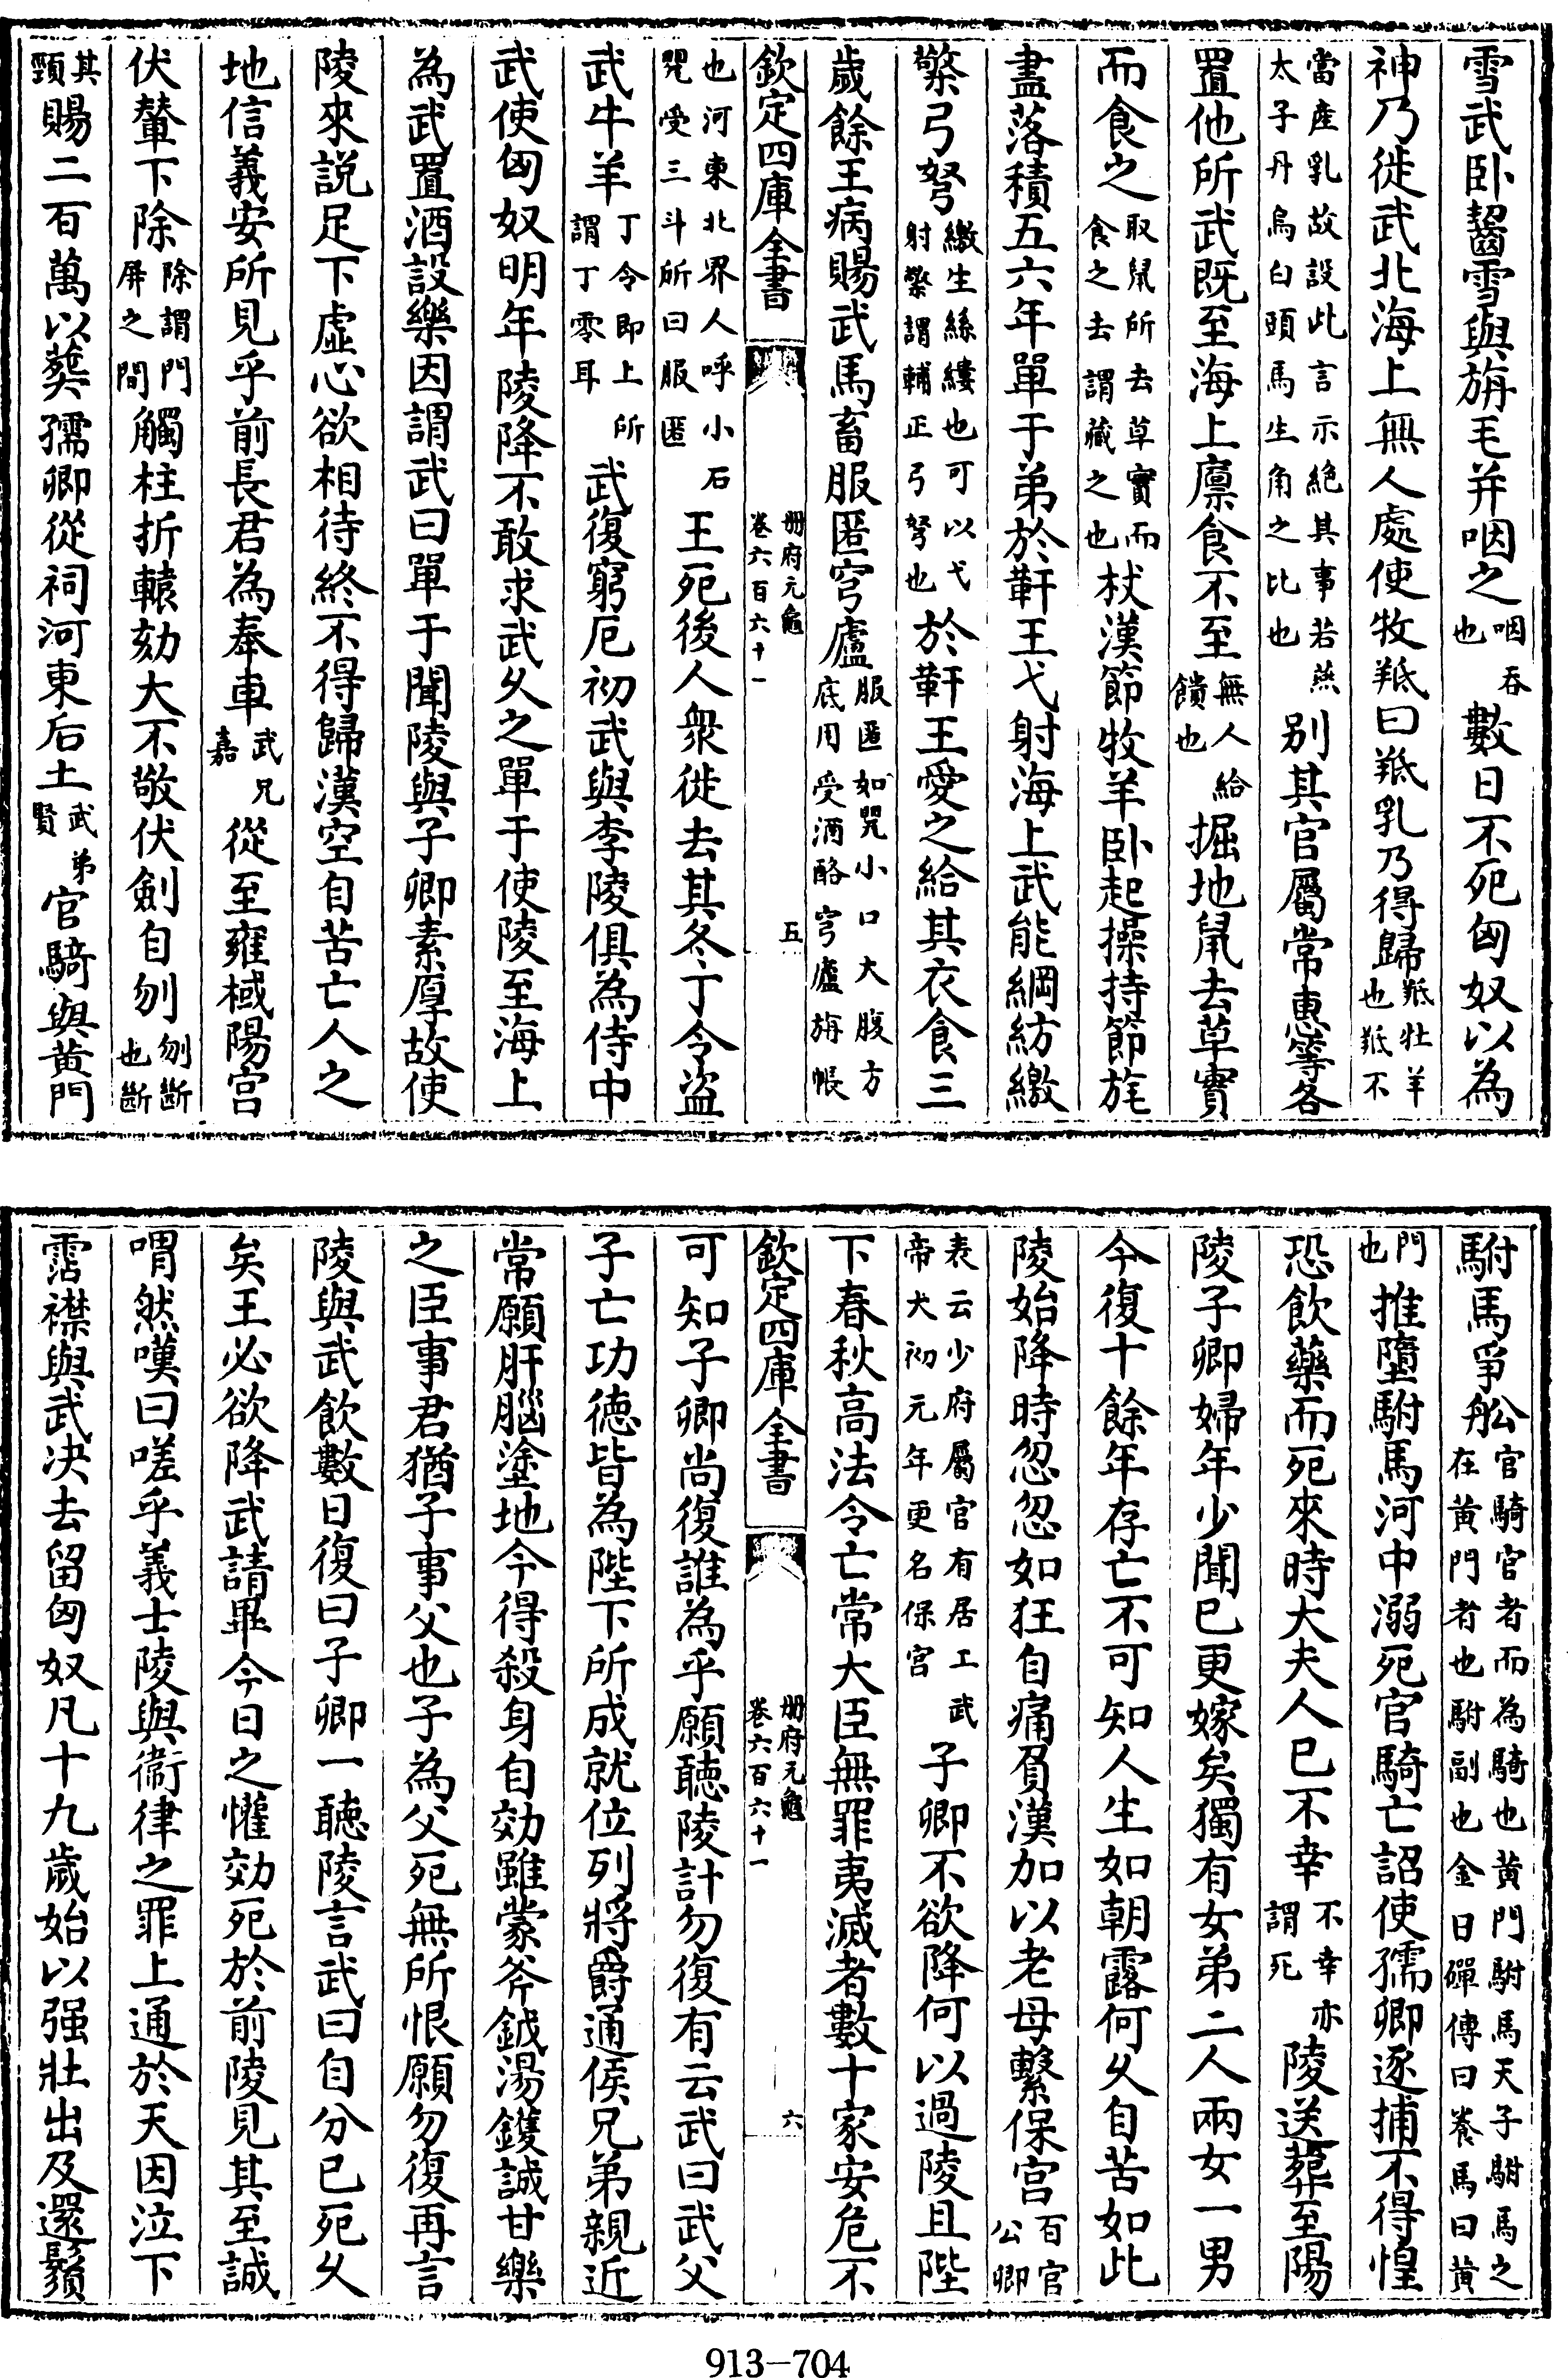 雪武卧齧雪與旃毛并咽之咽吞也數日不死匈奴以為
神乃徙武北海上無人處使牧羝曰羝乳乃得歸羝牡羊也羝不
當産乳故設此言示絶其事若燕太子丹烏白頭馬生角之比也别其官屬常惠等各
置他所武既至海上廪食不至無人給饋也掘地鼠去草實
而食之取鼠所去草實而食之去謂藏之也杖漢節牧羊卧起操持節旄
盡落積五六年單于弟於靬王弋射海上武能綱紡繳
檠弓弩繳生絲縷也可以弋射檠謂輔正弓弩也於靬王愛之給其衣食三
歲餘王病賜武馬畜服匿穹廬服匿如甖小口大腹方底用受酒酪穹廬旃帳
欽定四庫全書 册府元龜卷六百六十一 五
也河東北界人呼小石甖受三斗所曰服匿王死後人衆徙去其冬丁令盗
武牛羊丁令即上所謂丁零耳武復窮厄初武與李陵俱為侍中
武使匈奴明年陵降不敢求武乆之單于使陵至海上
為武置酒設樂因謂武曰單于聞陵與子卿素厚故使
陵來説足下虚心欲相待終不得歸漢空自苦亡人之
地信義安所見乎前長君為奉車武兄嘉從至雍棫陽宫
伏輦下除除謂門屏之間觸柱折轅劾大不敬伏劍自刎刎斷也斷
其頸賜二百萬以葬孺卿從祠河東后土武弟賢官騎與黄門
駙馬爭舩官騎官者而為騎也黄門駙馬天子駙馬之在黄門者也駙副也金日磾傳曰養馬曰黄
門也推墮駙馬河中溺死官騎亡詔使孺卿逐捕不得惶
恐飲藥而死來時大夫人已不幸不幸亦謂死陵送葬至陽
陵子卿婦年少聞已更嫁矣獨有女弟二人兩女一男
今復十餘年存亡不可知人生如朝露何乆自苦如此
陵始降時忽忽如狂自痛負漢加以老母繫保宫百官公卿
表云少府屬官有居工武帝犬初元年更名保宫子卿不欲降何以過陵且陛
下春秋高法令亡常大臣無罪夷滅者數十家安危不
欽定四庫全書 册府元龜卷六百六十一 六
可知子卿尚復誰為乎願聽陵計勿復有云武曰武父
子亡功徳皆為陛下所成就位列將爵通侯兄弟親近
常願肝腦塗地今得殺身自効雖蒙斧鉞湯鑊誠甘樂
之臣事君猶子事父也子為父死無所恨願勿復再言
陵與武飲數日復曰子卿一聽陵言武曰自分已死乆
矣王必欲降武請畢今日之懽効死於前陵見其至誠
喟然嘆曰嗟乎義士陵與衞律之罪上通於天因泣下
霑襟與武決去留匈奴凡十九歲始以强壯出及還鬚
913-704